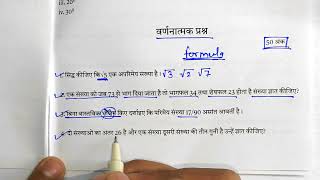 iii. 20°
iv. 30°
वर्णनात्मक प्रश्न
50 अंक
formula
सिद्ध कीजिए कि √5 एक अपरिमेय संख्या है। √3 √2 √7
एक संख्या को जब 73 से भाग दिया जाता है तो भागफल 34 तथा शेषफल 23 होता है संख्या ज्ञात कीजिए?
बिना वास्तविक किए दर्शाइए कि परिमेय संख्या 17/90 असांत आवर्ती है।
दो संख्याओ का अंतर 26 है और एक संख्या दूसरी संख्या की तीन गुनी है उन्हें ज्ञात कीजिए?